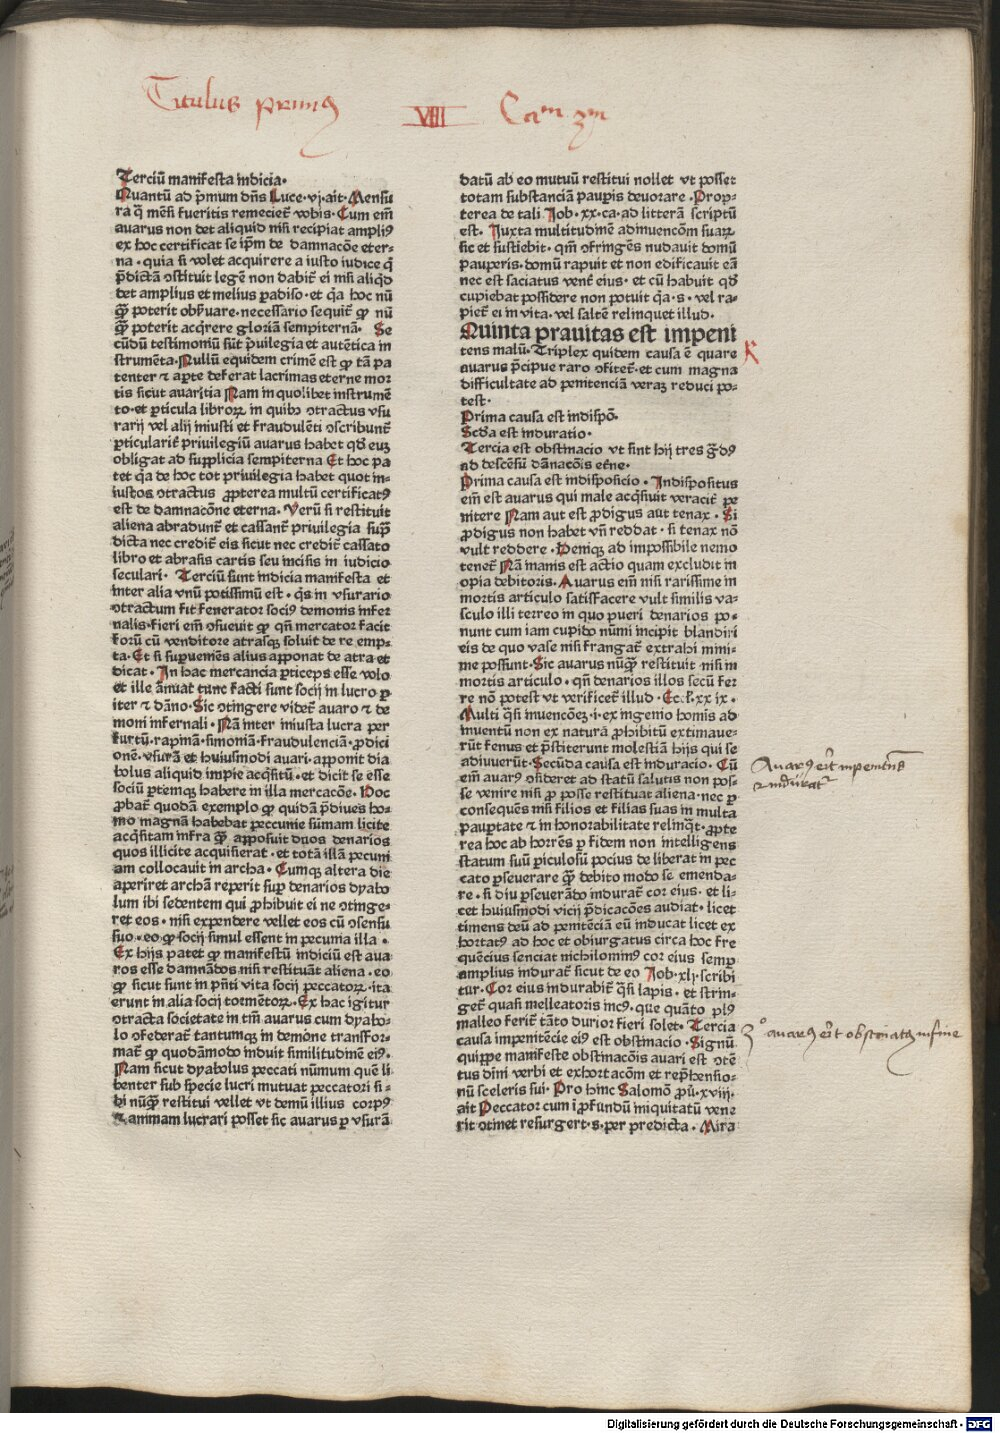 Titulus primꝰ VIII Caᵐ 3ᵐ
Terciū manifesta indicia·
Quantū ad p̄mum dn̄s Luce·vj·ait·Mensu
ra q̄ mēsi fueritis remeciet̄ vobis·Cum em̄
auarus non det aliquid nisi recipiat ampliꝰ
ex hoc certificat se ip̄m de damnacōe eter-
na·quia si volet acquirere a iusto iudice q̄
p̄dictā ↄstituit legē non dabit̄ ei nisi aliqd̄
det amplius et melius ꝑadiso·et qa hoc nū
qȝ̄ poterit obẜuare·necessario sequit̄ ꝙ nū
qȝ̄ poterit acq̄rere gloriā sempiternā· Se
cūdū testimoniū sūt p̄uilegia et autētica in
strumēta·Nullū equidem crimē est ꝙ tā pa
tenter ⁊ aꝑte deferat lacrimas eterne mor
tis sicut auaritia Nam in quolibet instrumē
to·et ꝑticula libroꝝ in quibꝫ ↄtractus vsu
rarij vel alij iniusti et fraudulēti ↄscribunt̄
ꝑticularit̄ priuilegiū auarus habet qd̄ euꝫ
obligat ad supplicia sempiterna Et hoc pa
tet qa de hoc tot priuilegia habet quot in-
iustos ↄtractus ꝓpterea multū certificatꝰ
est de damnacōne eterna·Verū si restituit
aliena abradunt̄ et cassant̄ priuilegia sup̄
dicta nec credit̄ eis sicut nec credit̄ cassato
libro et abrasis cartis seu incisis in iudicio
seculari· Terciū sunt indicia manifesta et
inter alia vnū potissimū est·qꝫ in vsurario
ↄtractum fit fenerator sociꝰ demonis infer
nalis·fieri em̄ ↄsueuit ꝙ qn̄ mercator facit
forū cū venditore atrasqꝫ soluit de re emp-
ta·Et si suꝑueniēs alius apponat de atra et
dicat·In hac mercancia ꝑticeps esse volo
et ille ānuat tunc facti sunt socij in lucro ꝑ-
iter ⁊ dāno·Sic ↄtingere videt̄ auaro ⁊ de
moni infernali·Nā inter iniusta lucra per
furtū·rapinā·simoniā·fraudulenciā·ꝓdici
onē·vsurā et huiusmodi auari·apponit dia
bolus aliquid impie acq̄sitū·et dicit se esse
sociū ꝑtemqꝫ habere in illa mercacōe·Hoc
ꝓbat̄ quodā exemplo ꝙ quidā p̄diues ho-
mo magnā habebat peccunie sūmam licite
acq̄sitam infra qȝ̄ apposuit duos denarios
quos illicite acquisierat·et totā illā pecuni
am collocauit in archa·Cumqꝫ altera die
aperiret archā reperit suꝑ denarios dyabo
lum ibi sedentem qui ꝓhibuit ei ne ↄtinge-
ret eos·nisi expendere vellet eos cū ↄsensu
suo·eo ꝙ socij simul essent in pecunia illa·
Ex hijs patet ꝙ manifestū indiciū est aua-
ros esse damnādos nisi restituāt aliena·eo
ꝙ sicut sunt in p̄nti vita socij peccatoꝝ·ita
erunt in alia socij tormētoꝝ·Ex hac igitur
ↄtracta societate in tm̄ auarus cum dyabo-
lo ↄfederat̄ tantumqꝫ in demone transfor-
mat̄ ꝙ quodāmodo induit similitudinē eiꝰ·
Nam sicut dyabolus peccati nūmum quē li-
benter sub specie lucri mutuat peccatori si-
bi nūqȝ̄ restitui vellet vt demū illius corpꝰ
⁊ animam lucrari posset sic auarus ꝑ vsurā
datū ab eo mutuū restitui nollet vt posset
totam substanciā pauꝑis deuorare·Prop-
terea de tali Job·xx·ca·ad litterā scriptū
est·Iuxta multitudinē adinuencōm suaꝝ
sic et sustiebit·qm̄ ↄfringēs nudauit domū
pauperis·domū rapuit et non edificauit eā
nec est saciatus vent̄ eius·et cū habuit qd̄
cupiebat possidere non potuit qa·s·vel ra-
piet̄ ei in vita·vel saltē relinquet illud·
Quinta prauitas est impeni
tens malū·Triplex quidem causa ē quare
auarus p̄cipue raro ↄfitet̄·et cum magna
difficultate ad penitenciā veraꝫ reduci po-
test·
Prima causa est indispō·
Scd̄a est induratio·
Tercia est obstinacio vt sint hij tres g̃dꝰ
ad descēsū dānacōis etn̄e·
Prima causa est indisposicio·Indispositus
em̄ est auarus qui male acq̄siuit veracit̄ pe
nitere Nam aut est ꝓdigus aut tenax·Si
ꝓdigus non habet vn̄ reddat·si tenax nō
vult reddere·Deniqꝫ ad impossibile nemo
tenet̄ Nā inanis est actio quam excludit in
opia debitoris·Auarus em̄ nisi rarissime in
mortis articulo satisfacere vult similis va-
sculo illi terreo in quo pueri denarios po-
nunt cum iam cupido nūmi incipit blandiri
eis de quo vase nisi frangat̄ extrahi mini-
me possunt·Sic auarus nūqȝ̄ restituit nisi in
mortis articulo·qn̄ denarios illos secū fer
re nō potest vt verificet̄ illud·Eccl̄·xxix·
Multi q̄si inuencōeꝫ·i·ex ingenio homīs ad
inuentū non ex naturā ꝓhibitū extimaue-
rūt fenus et p̄stiterunt molestiā hijs qui se
adiuuerūt·Secūda causa est induracio·Cū
em̄ auarꝰ ↄsideret ad statū salutis non pos-
se venire nisi ꝓ posse restituat aliena·nec ꝑ
consequēs nisi filios et filias suas in multa
pauꝑtate ⁊ in honorabilitate relinq̄t·ꝓpte
rea hoc ab horrēs ꝑ fidem non intelligens
statum suū ꝑiculosū pocius de liberat in pec
cato ꝑseuerare qȝ̄ debito modo se emenda-
re·si diu ꝑseuerādo indurat̄ cor eius·et li-
cet huiusmodi vicij p̄dicacōes audiat·licet
timens deū ad penitēciā eū inducat licet ex
hortatꝰ ad hoc et obiurgatus circa hoc fre
quēcius senciat nichilominꝰ cor eius semꝑ
amplius indurat̄ sicut de eo Job·xlj·scribi
tur·Cor eius indurabit̄ q̄si lapis·et strin-
get̄ quasi melleatoris incꝰ·que quāto plꝰ
malleo ferit̄ tāto durior fieri solet·Tercia
causa impenitēcie eiꝰ est obstinacio·Signū
quippe manifeste obstinacōis auari est ↄtē
tus diīni verbi et exhortacōm et rep̄hensio-
nū sceleris sui·Pro hinc Salomō ꝓū·xviij·
ait Peccator cum ī ꝓfundū iniquitatū vene
rit ↄtinet resurgert·s·per predicta·Mira
Auarꝰ erit impenitens
⁊ indurat⁹
3° auarꝰ erit obstinatꝰ in fine
Digitalisierung gefördert durch die Deutsche Forschungsgemeinschaft - DFG